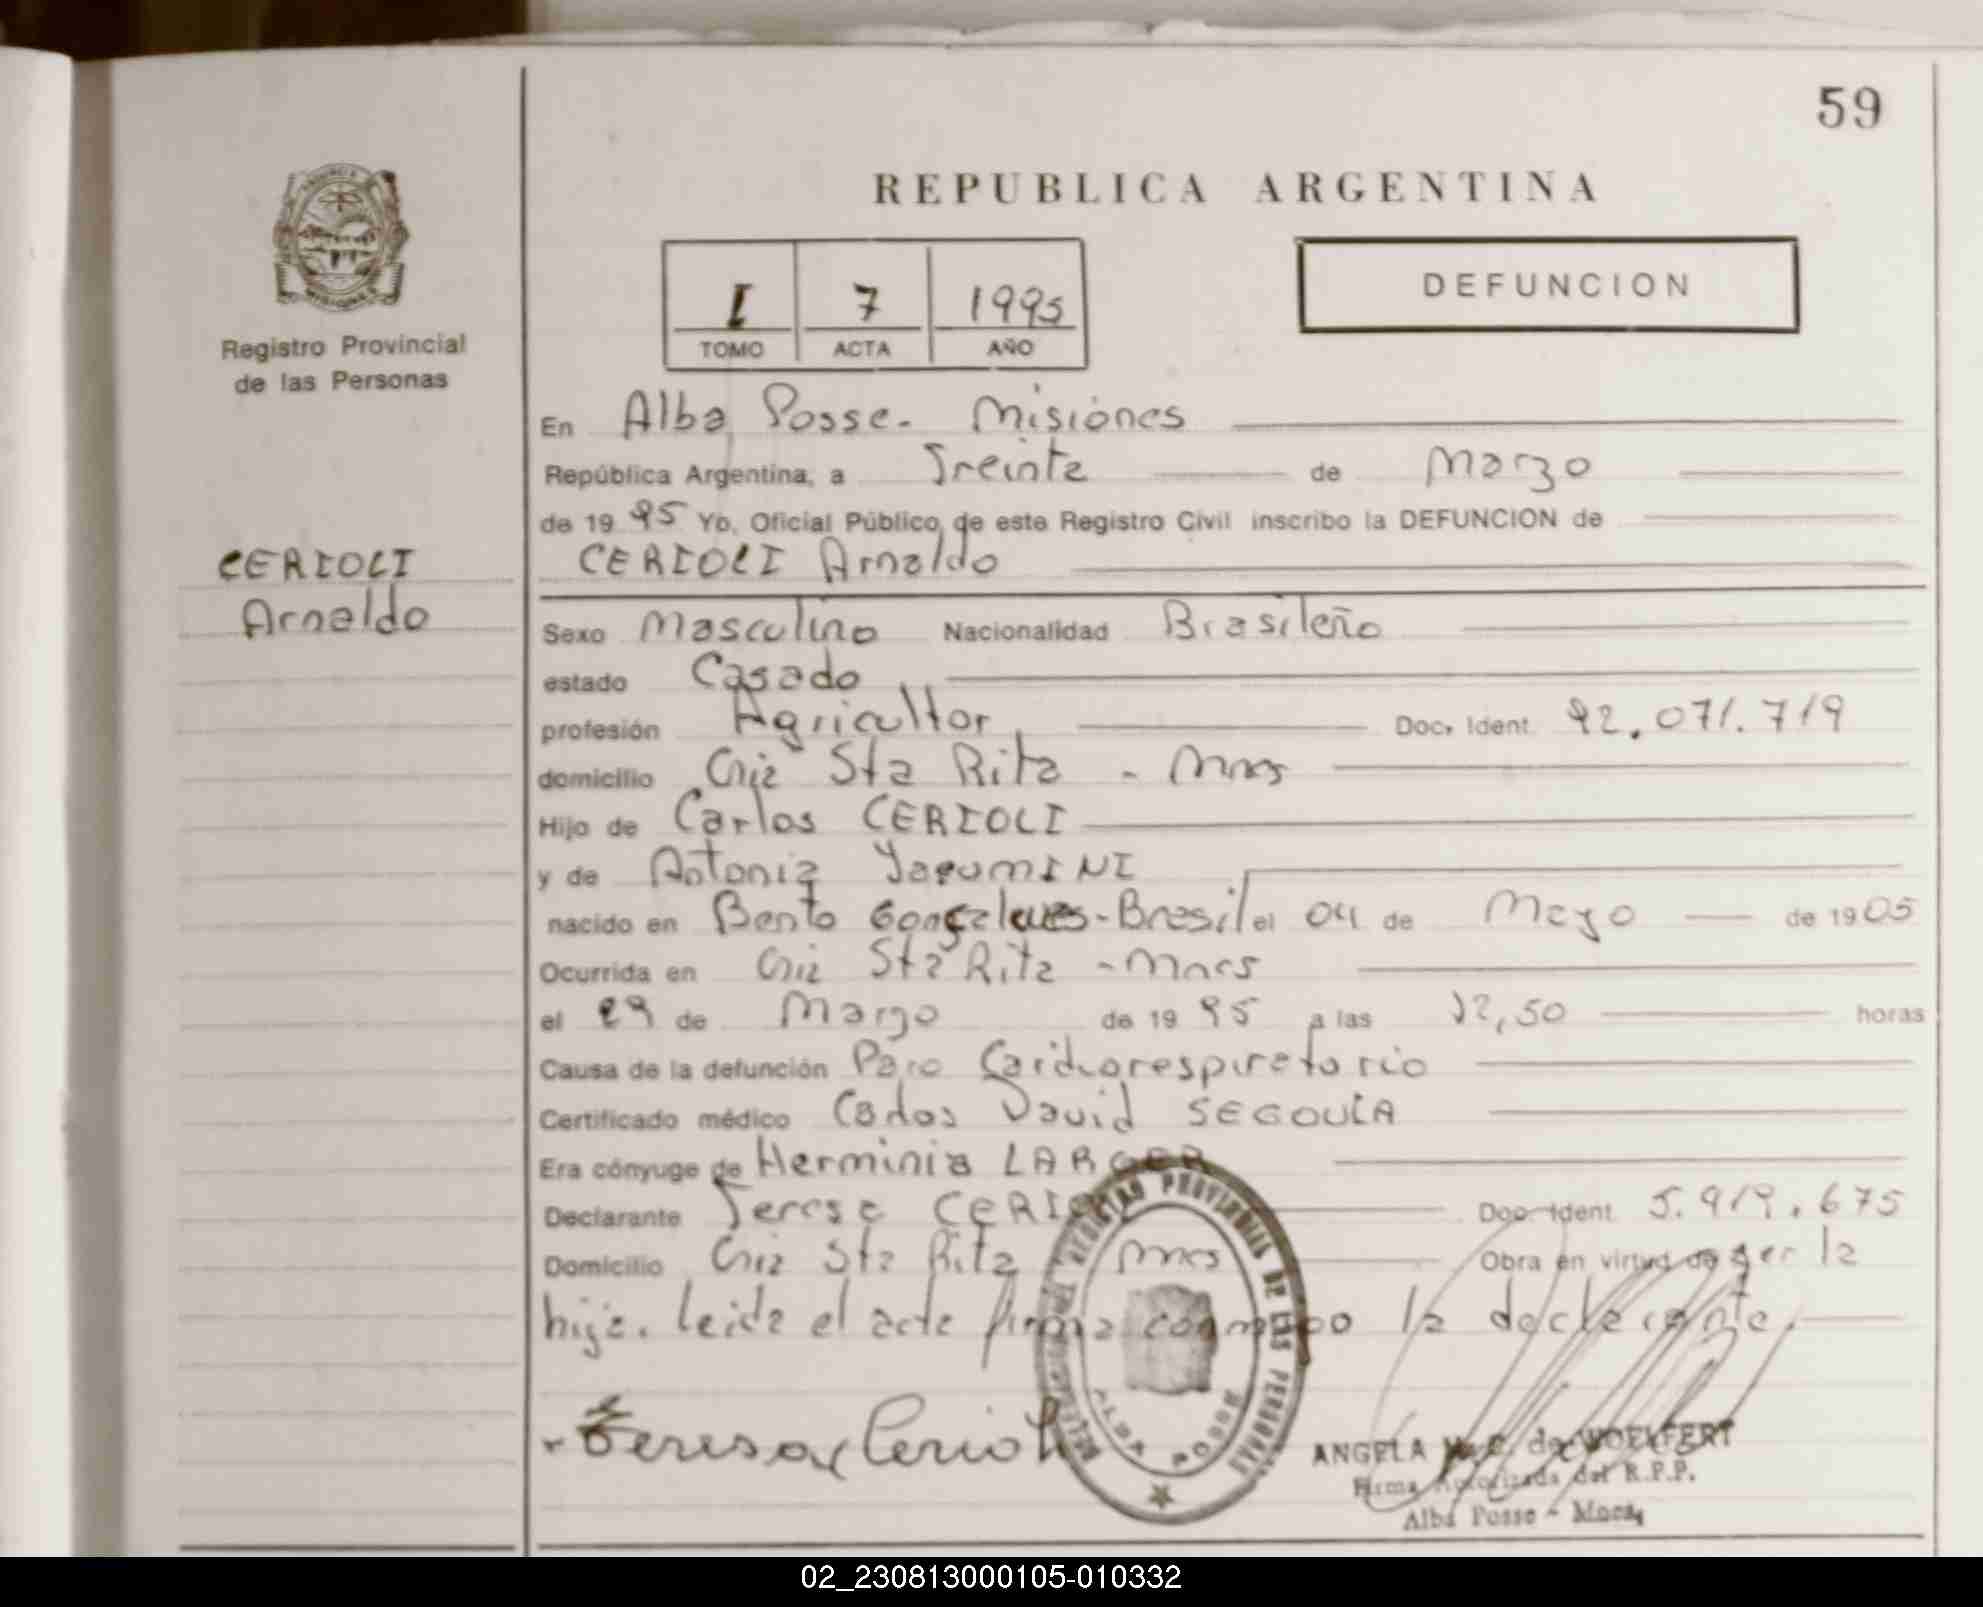 59
REPUBLICA ARGENTINA
I 7 1995
TOMO ACTA AÑO
DEFUNCION
Registro Provincial
de las Personas
CERIOLI
Arnaldo
En Alba Posse - Misiones
República Argentina, a Treinta de Marzo
de 19 95 Yo, Oficial Público, de este Registro Civil inscribo la DEFUNCION de
CERIOLI Arnaldo
Sexo Masculino Nacionalidad Brasileño
estado Casado
profesión Agricultor Doc. Ident. 92.071.719
domicilio Sta Rita - Mnes
Hijo de Carlos CERIOLI
y de Antonia
nacido en Bento Gonçalves - Brasil el 04 de Mayo de 1905
Ocurrida en Sta Rita - Mnes
el 29 de Marzo de 19 95 a las 12,50 horas
Causa de la defunción Paro Cardiorespiratorio
Certificado médico Carlos David SEGOVIA
Era cónyuge de Herminia LARGER
Declarante Teresa CERIOLI Doc. Ident. 5.919.675
Domicilio Sta Rita Mnes Obra en virtud de ser la
hija. Leida el acta firma conmigo la declarante.
Teresa Cerioli
REGISTRO PROVINCIAL DE LAS PERSONAS
ALBA POSSE
ANGELA de WOELFERT
Firma Autorizada del R.P.P.
Alba Posse - Mnes.
02_230813000105-010332